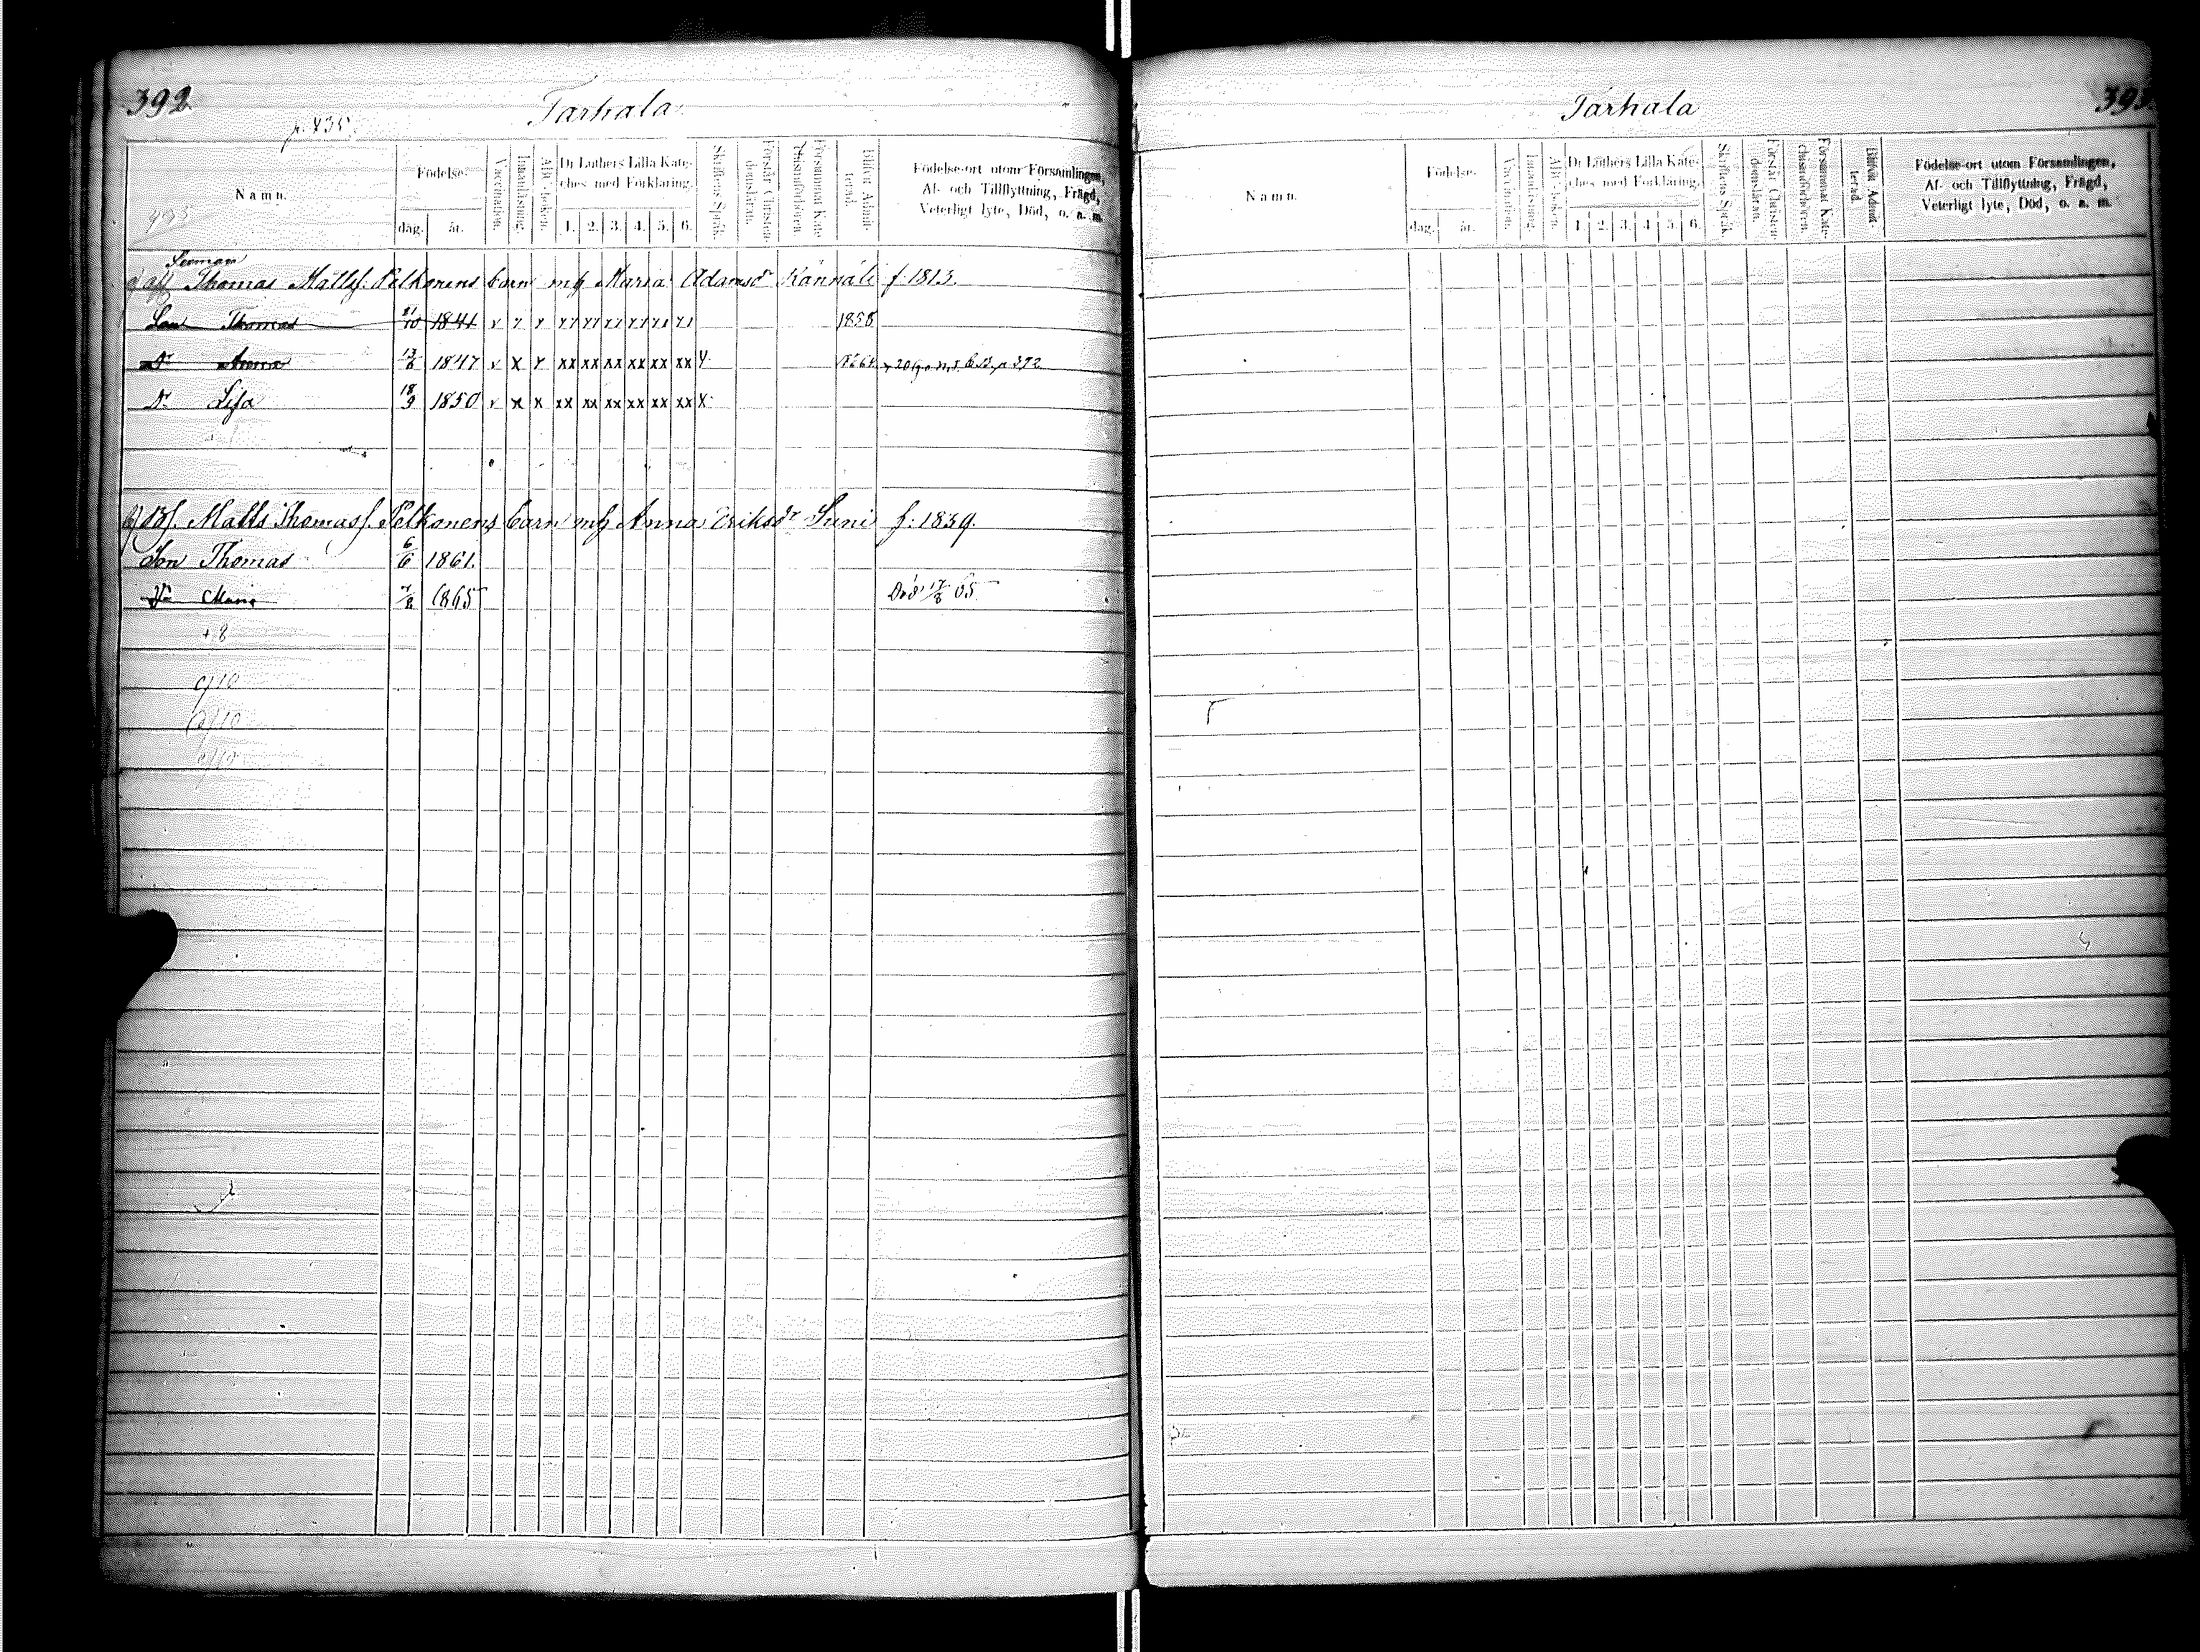 392
Tarhala
p. 435
Namn.
Födelse-
dag. år.
Vaccination.
Innanläsning.
ABC-boken.
Dr Luthers Lilla Kateches med Förklaring.
1. 2. 3. 4. 5. 6.
Skriftens Språk.
Förstår Christendomsläran.
Försummat Katechismiförhören.
Blifvit Admitterad.
Födelse-ort utom Församlingen,
Af- och Tillflyttning, Frägd,
Veterligt lyte, Död, o. s. m.
Thomas Mattss. Pelkonens barn m h Maria Adamsdr Kännälä f 1813.
Son Thomas 21/10 1841 1858
Dr Anna 13/6 1847 v x x xx xx xx xx xx xx 1864 p 392
Dr Lisa 18/9 1850 v x x xx xx xx xx xx xx x
Matts Thomass. Pelkonens barn m h Anna Eriksdr Suni f: 1839.
Son Thomas 6/6 1861.
Dr Maria 7/8 1865 Död 17/8 65
+ 8
9/10
Tarhala
Namn.
Födelse-
dag. år.
Vaccination.
Innanläsning.
ABC-boken.
Dr Luthers Lilla Kateches med Förklaring.
1. 2. 3. 4. 5. 6.
Skriftens Språk.
Förstår Christendomsläran.
Försummat Katechismiförhören.
Blifvit Admitterad.
Födelse-ort utom Församlingen,
Af- och Tillflyttning, Frägd,
Veterligt lyte, Död, o. s. m.